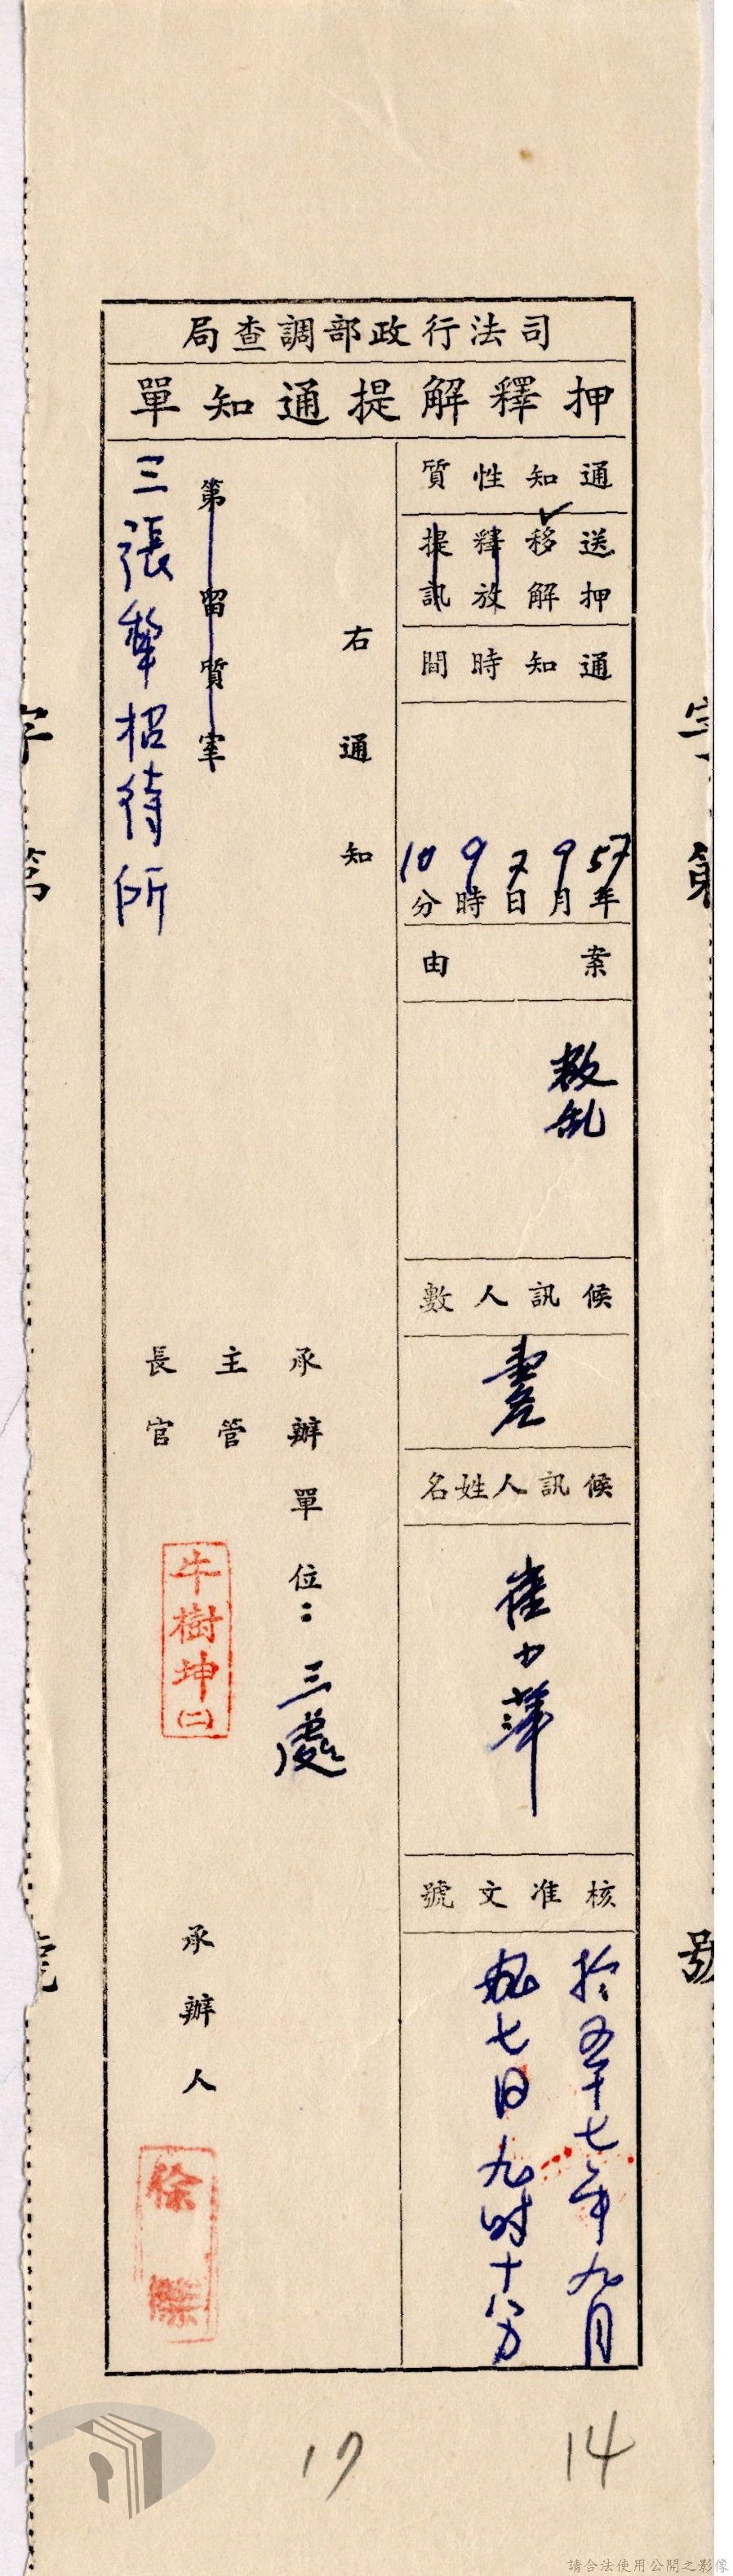 司法行政部調查局
押釋解提通知單
通知性質
送押
移解
釋放
提訊
通知時間
57年9月7日9時10分
案由
叛乱
候訊人數
壹名
候訊人姓名
崔小萍
核准文號
於五十七年九月
七日九时十八分
右通知
第留質室
三張犁招待所
承辦單位：三處
主管
長官
牛樹坤(二)
承辦人
徐
字第
號
字第
號
17
14
請合法使用公開之影像